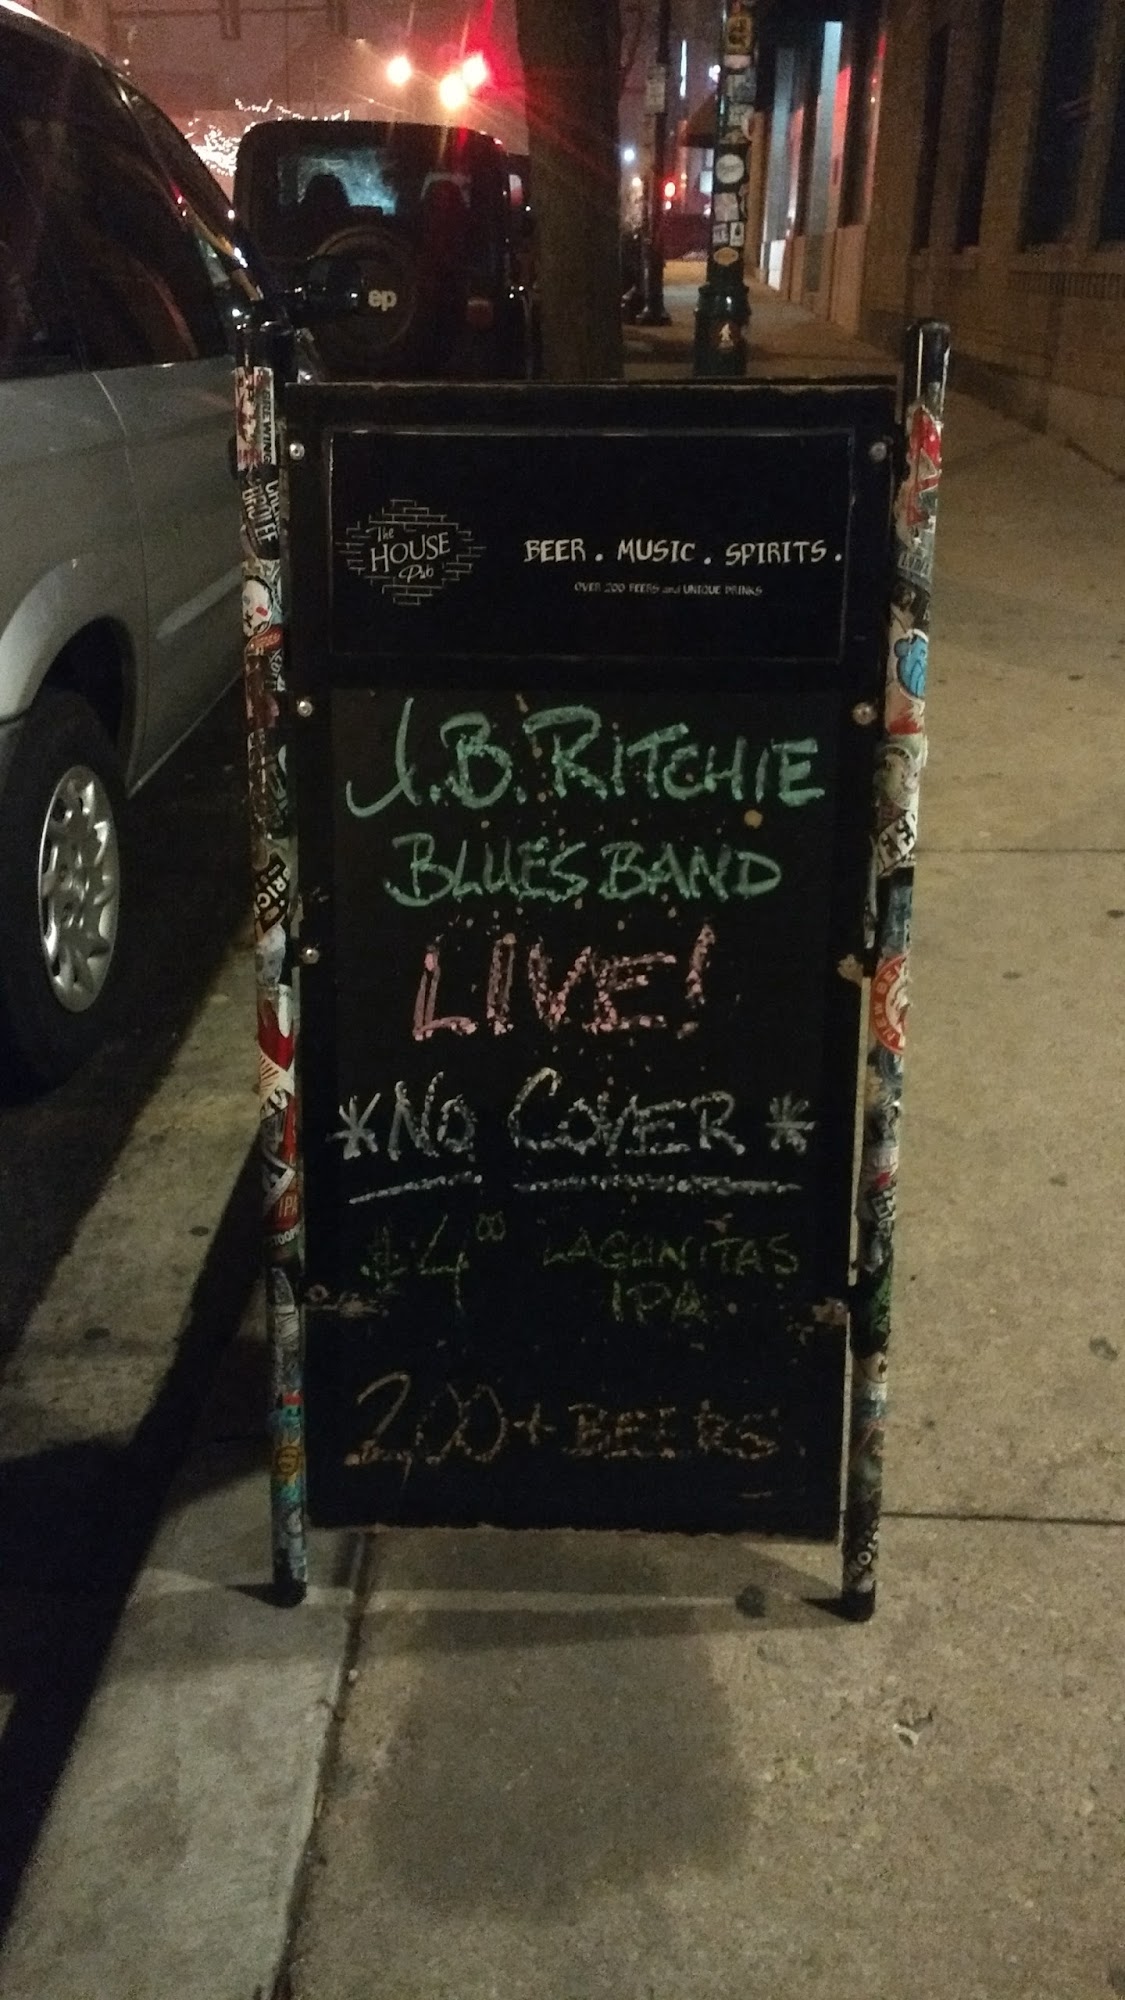 ep
The
HOUSE
Pub
BEER . MUSIC . SPIRITS .
OVER 200 BEERS and UNIQUE DRINKS
J.B. RITCHIE
BLUES BAND
LIVE!
*NO COVER*
$4⁰⁰ LAGUNITAS
IPA
200+ BEERS